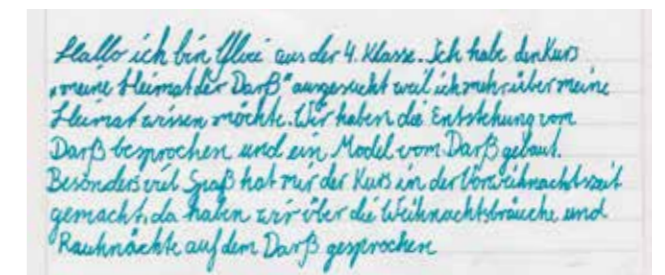 Hallo ich bin aus der 4. Klasse. Ich habe den Kurs
„meine Heimat der Darß" ausgesucht weil ich mehr über meine
Heimat wissen möchte. Wir haben die Entstehung vom
Darß besprochen und ein Model vom Darß gebaut.
Besonders viel Spaß hat mir der Kurs in der Vorweihnachtszeit
gemacht, da haben wir über die Weihnachtsbräuche und
Rauhnächte auf dem Darß gesprochen